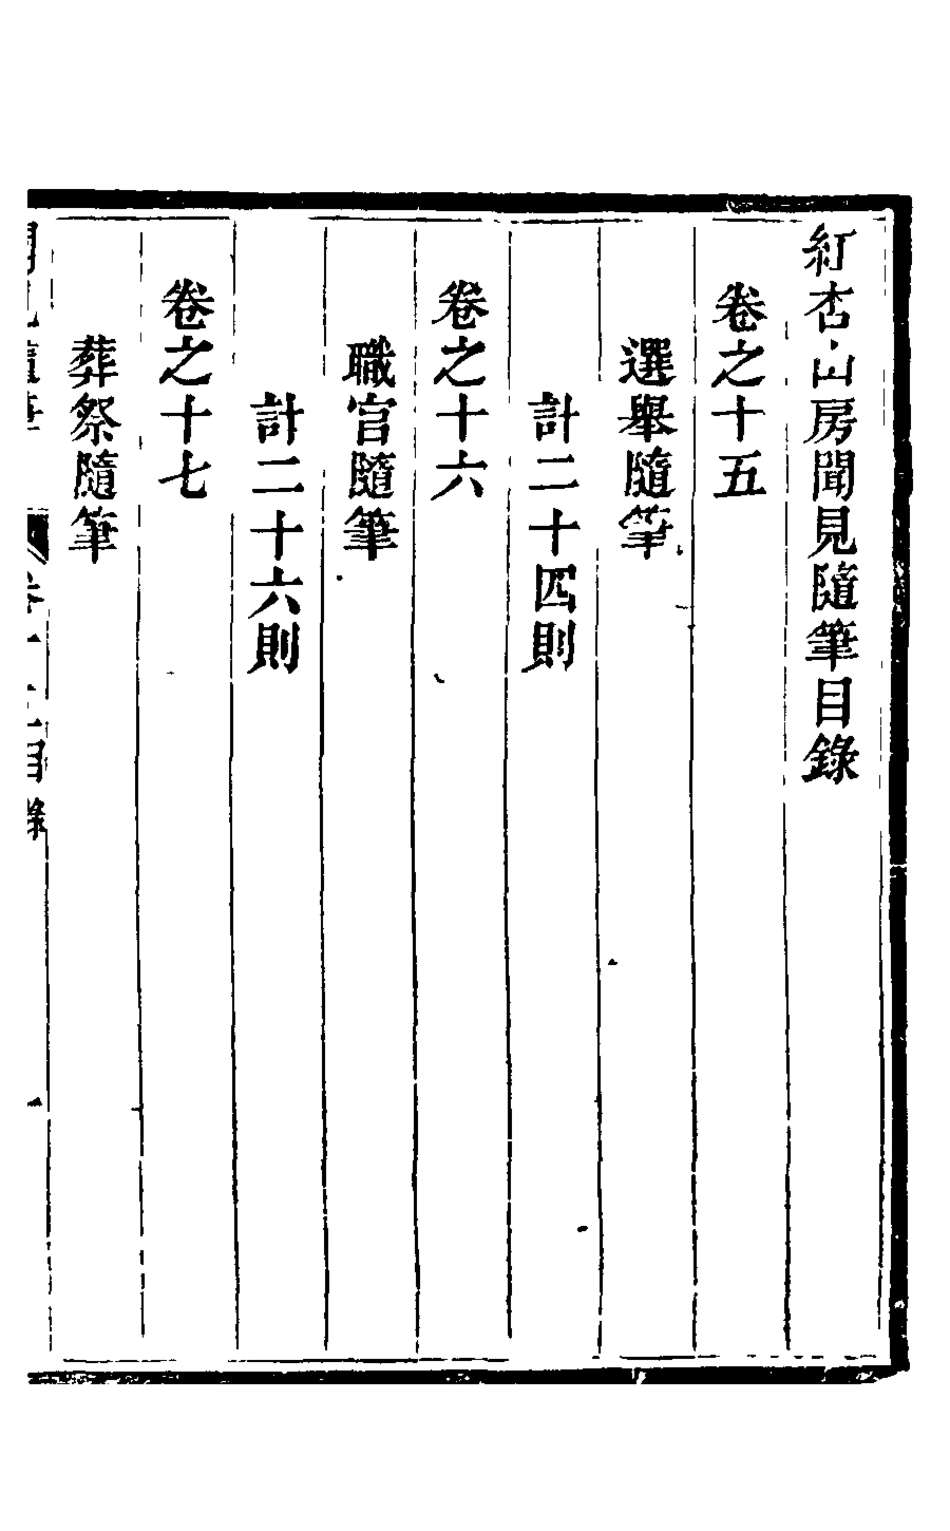 紅杏山房聞見隨筆目錄
卷之十五
選舉隨筆
計二十四則
卷之十六
職官隨筆
計二十六則
卷之十七
葬祭隨筆